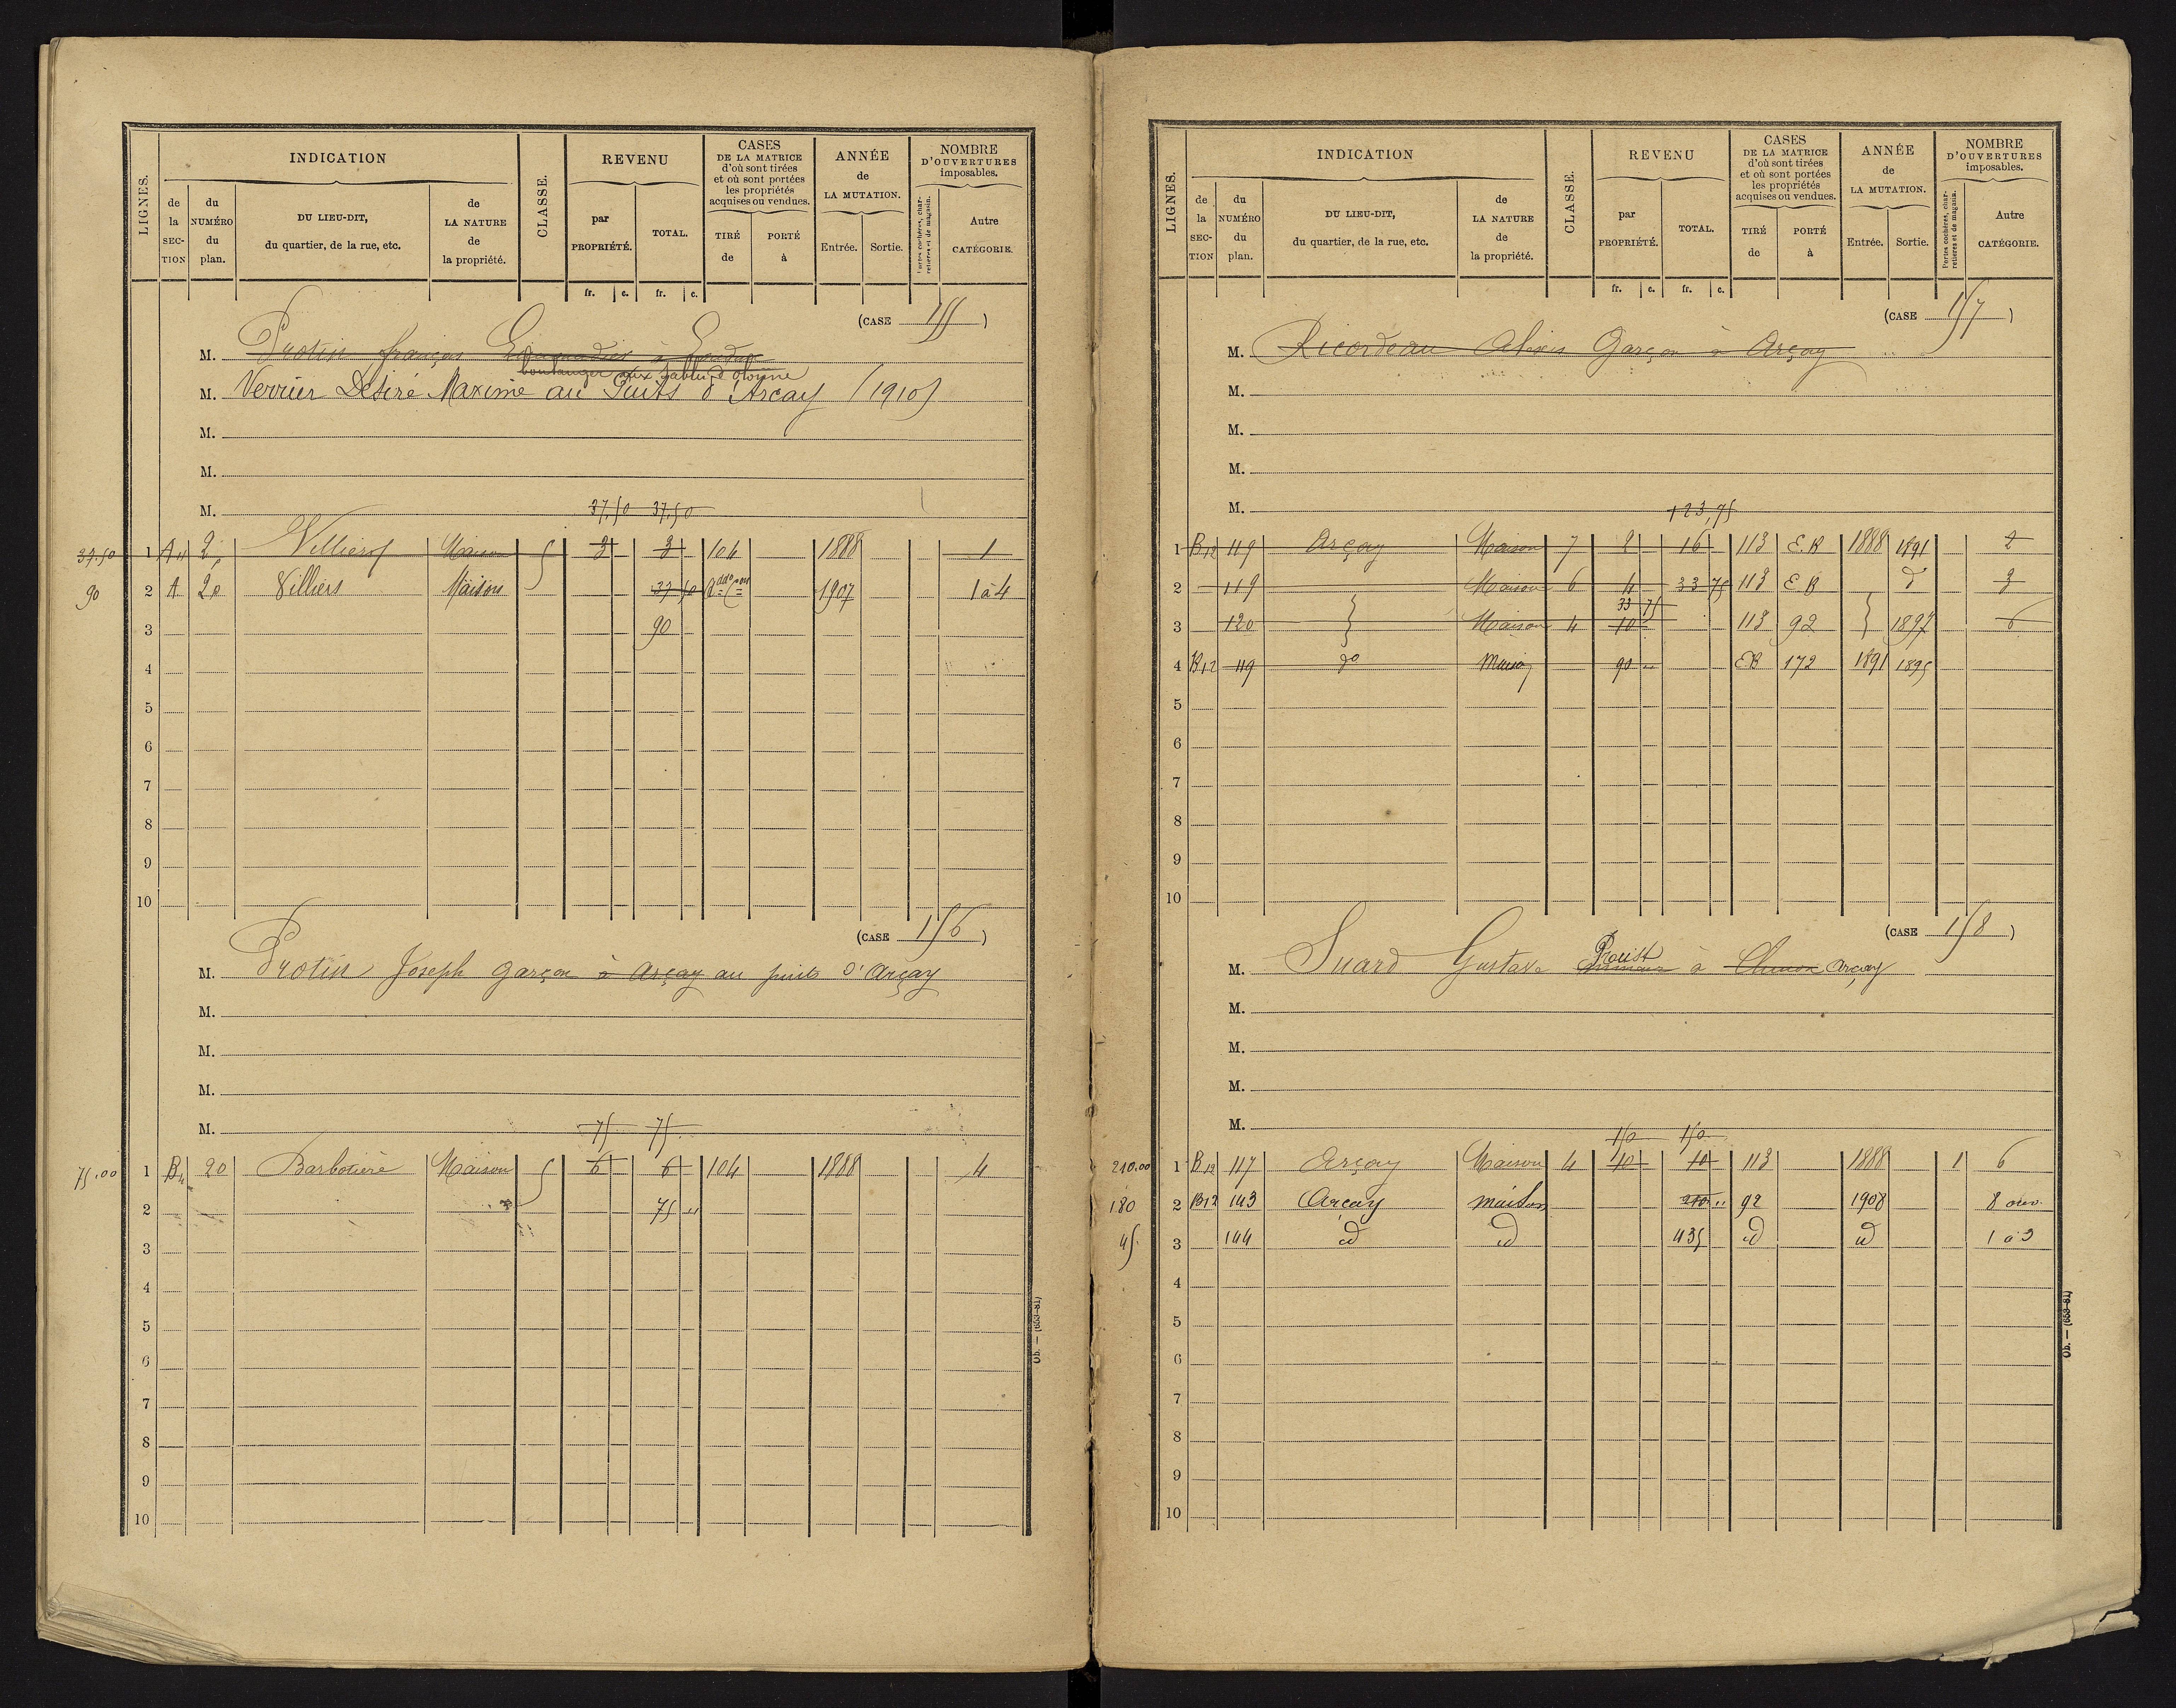 LIGNES.
INDICATION
de la SEC-TION
du NUMÉRO du plan.
DU LIEU-DIT, du quartier, de la rue, etc.
de LA NATURE de la propriété.
CLASSE.
REVENU
par PROPRIÉTÉ.
TOTAL.
CASES DE LA MATRICE d'où sont tirées et où sont portées les propriétés acquises ou vendues.
TIRÉ de
PORTÉ à
ANNÉE de LA MUTATION.
Entrée.
Sortie.
NOMBRE D'OUVERTURES imposables.
Portes cochères, charretières et de magasin.
Autre CATÉGORIE.
fr. c. fr. c.
(CASE 155)
M. Protin françois à Loudun
boulanger aux Sables d'olonne
M. Verrier Désiré Maxime au Puits d'Arçay (1910)
M.
M.
M.
37,50 37,50
37.50 1 A 2 Villiers Maison 5 3 3 104 1888 1
90 2 A 2 Villiers Maison 37 50 1907 1 à 4
3 90
4
5
6
7
8
9
10
(CASE 156)
M. Protin Joseph garçon à Arçay au puits d'Arçay
M.
M.
M.
M.
75 75
75.00 1 B4 20 Barbotière Maison 5 6 6 104 1888 4
2 75 "
3
4
5
6
7
8
9
10
Ob. — (639-81)
LIGNES.
INDICATION
de la SEC-TION
du NUMÉRO du plan.
DU LIEU-DIT, du quartier, de la rue, etc.
de LA NATURE de la propriété.
CLASSE.
REVENU
par PROPRIÉTÉ.
TOTAL.
CASES DE LA MATRICE d'où sont tirées et où sont portées les propriétés acquises ou vendues.
TIRÉ de
PORTÉ à
ANNÉE de LA MUTATION.
Entrée.
Sortie.
NOMBRE D'OUVERTURES imposables.
Portes cochères, charretières et de magasin.
Autre CATÉGORIE.
fr. c. fr. c.
(CASE 157)
M. Ricordeau Alexis Garçon à Arçay
M.
M.
M.
M.
123,75
1 B12 119 Arçay Maison 7 2 16 113 E.B 1888 1891 2
2 119 Maison 6 4 33 75 113 E.B d 3
33 75
3 120 Maison 4 10 113 92 1897 6
4 B12 119 do Maison 90 " EB 172 1891 1895
5
6
7
8
9
10
(CASE 158)
M. Suard Gustave Proust à Chinon Arçay
M.
M.
M.
M.
150 150
210.00 1 B12 117 Arçay Maison 4 10 10 113 1888 1 6
180 2 B12 143 Arcay maison 210 " 92 1908 8 ouv.
45. 3 144 id id 435 id id 1 à 3
4
5
6
7
8
9
10
Ob. — (639-81)